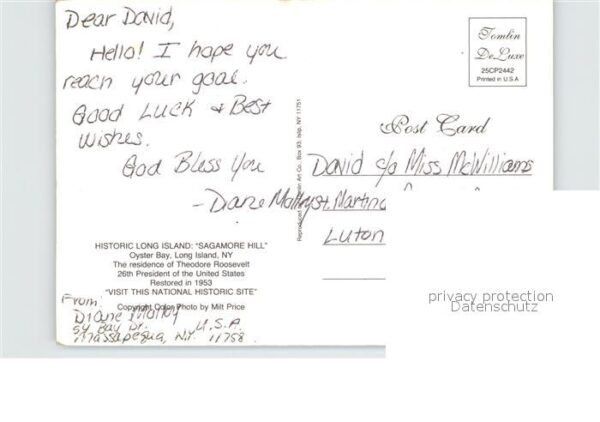 Dear David,
Hello! I hope you
reach your goal.
Good Luck & Best
Wishes.
God Bless You
- Diane Malloy
HISTORIC LONG ISLAND: "SAGAMORE HILL"
Oyster Bay, Long Island, NY
The residence of Theodore Roosevelt
26th President of the United States
Restored in 1953
"VISIT THIS NATIONAL HISTORIC SITE"
Copyright Color Photo by Milt Price
From:
Diane Malloy
54 Bay Dr. U.S.A.
Massapequa, N.Y. 11758
Art Co. Box 93, Islip, NY 11751
Tomlin
De Luxe
25CP2442
Printed in U.S.A
Post Card
David c/o Miss McWilliams
St. Martins
Luton
privacy protection
Datenschutz